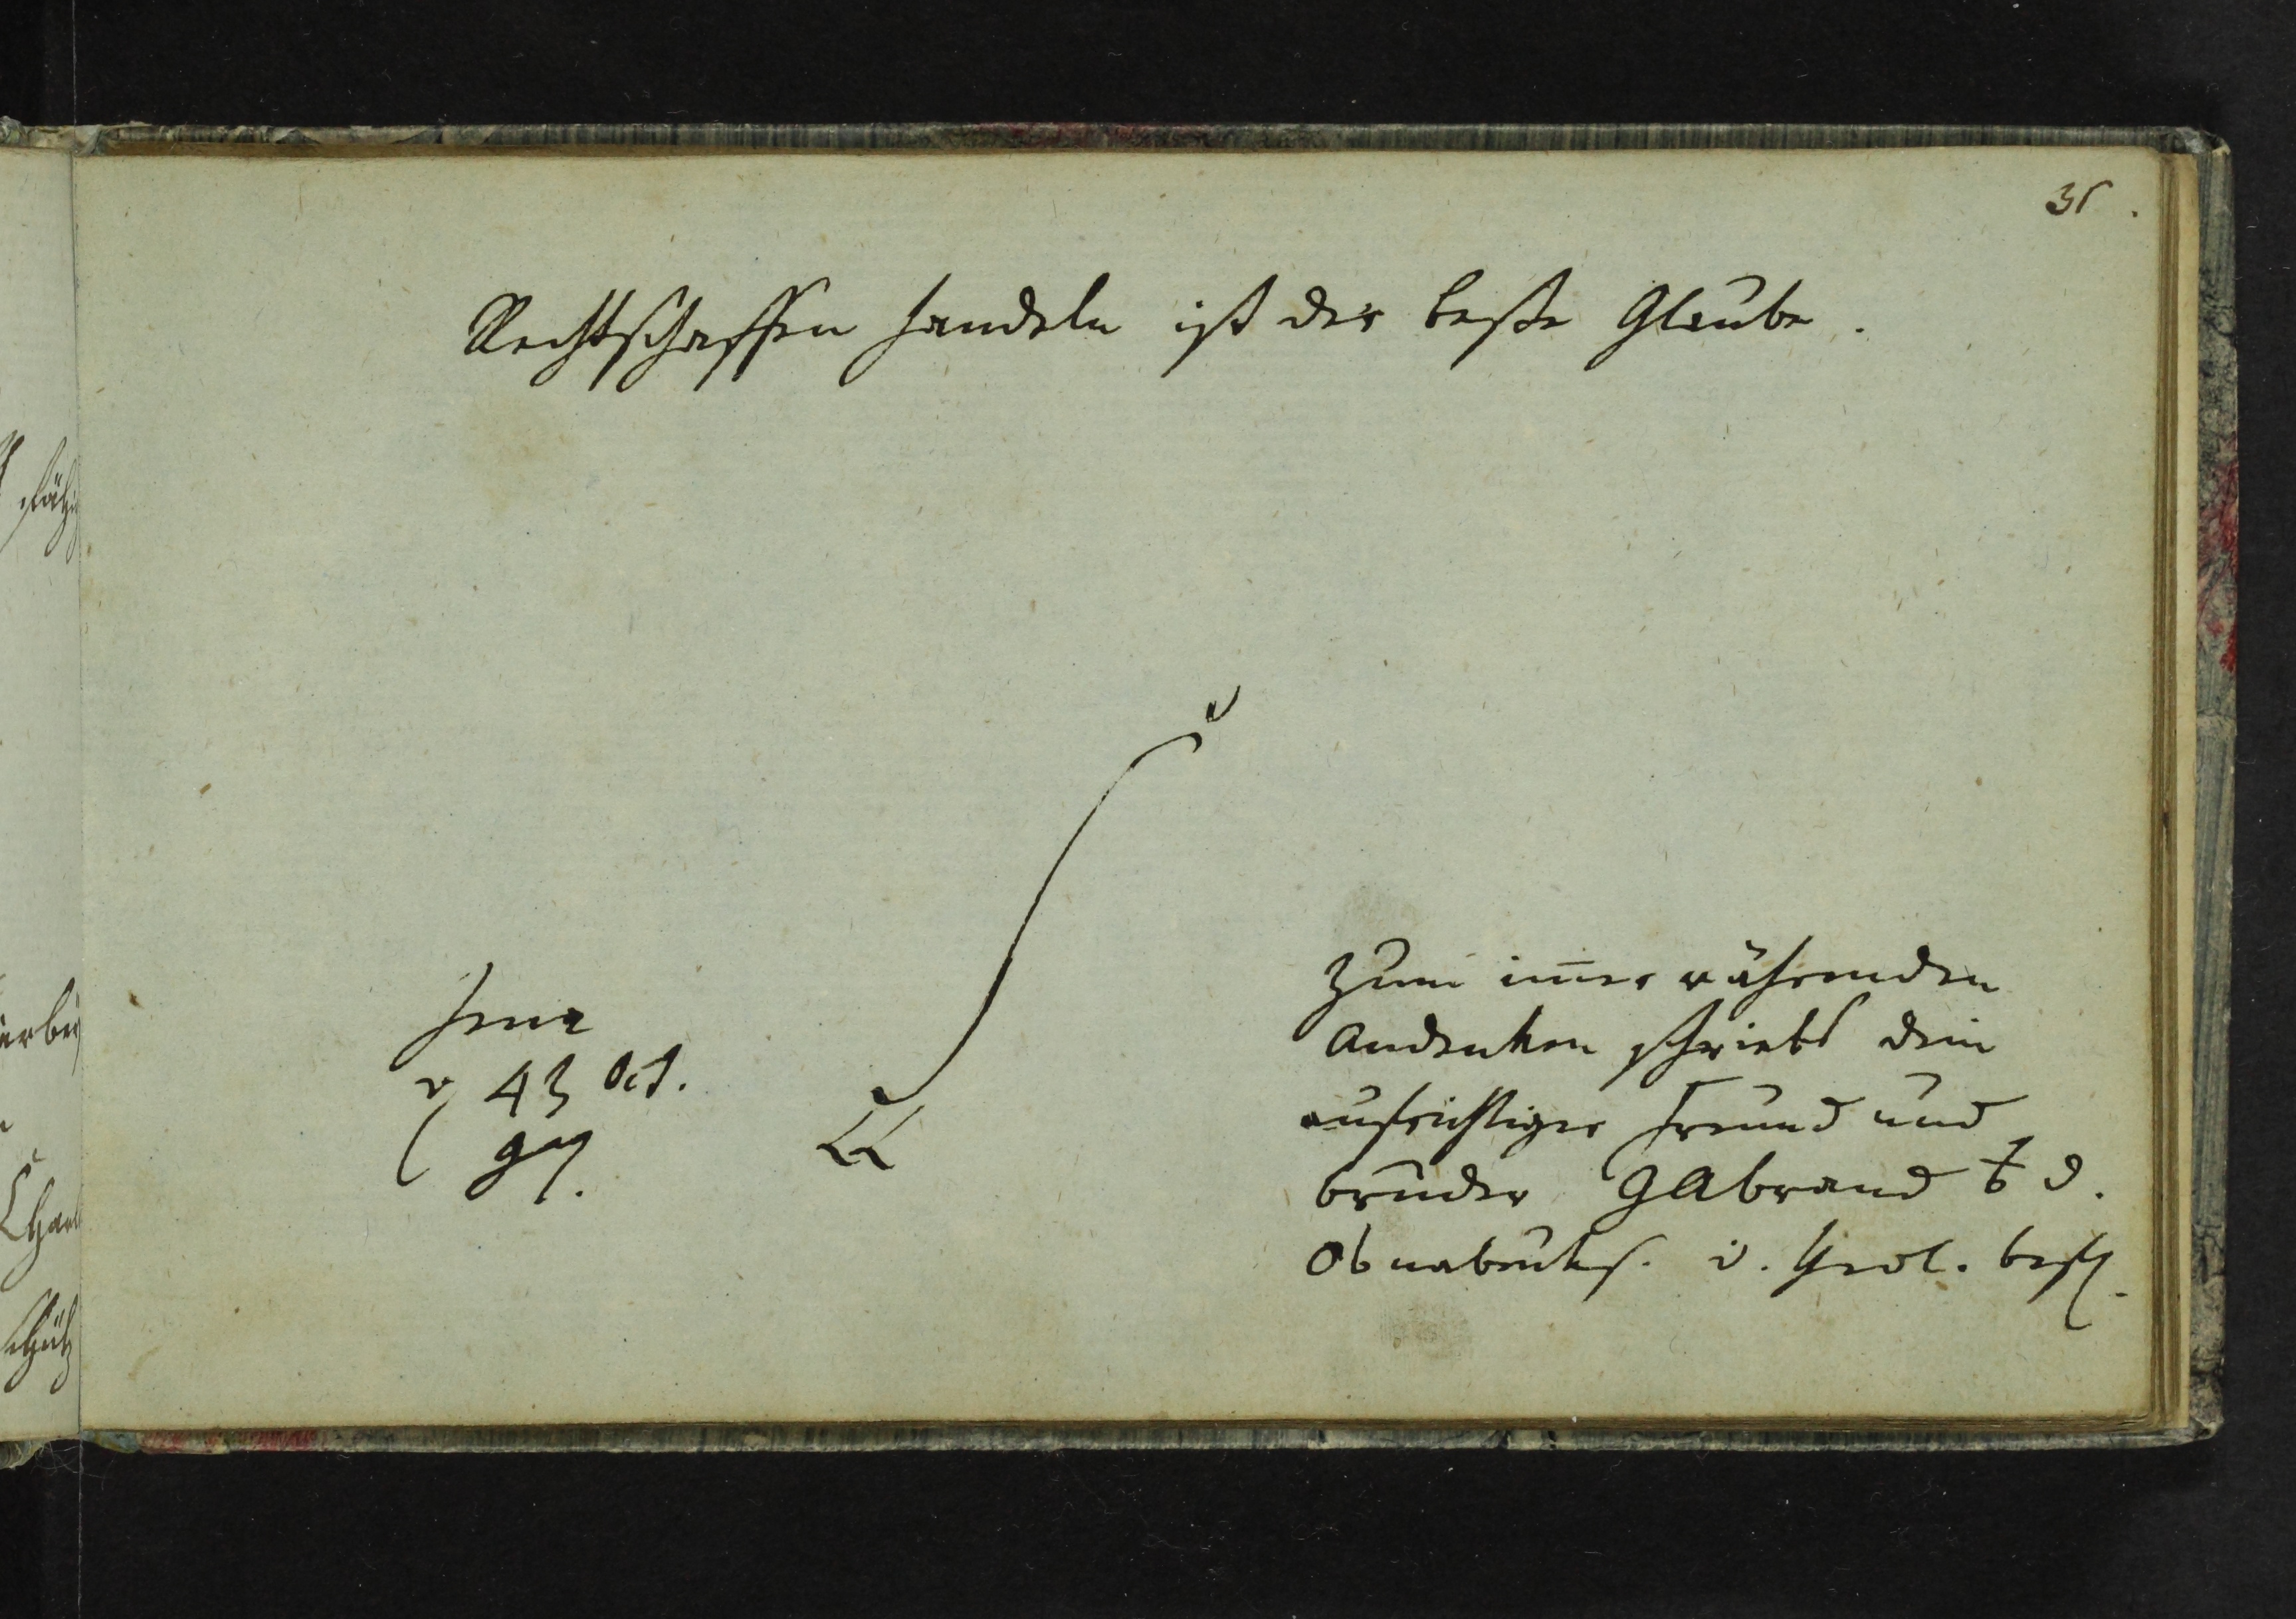 35.
Rechtschaffen handeln ist der beste Glaube.
Jena
d 43 Oct.
97.
Zum im̅er währenden
Andenken schriebs dein
aufrichtiger Freund und
Bruder GABrand d.
Theol. Besch.